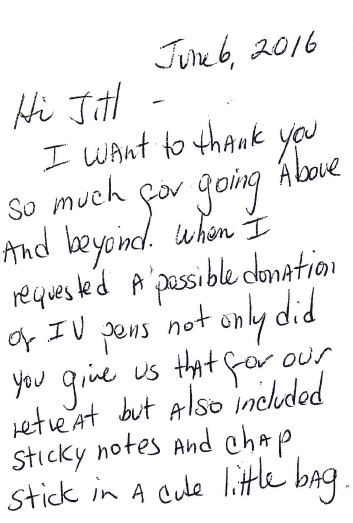 June 6, 2016
Hi Jill -
I want to thank you
so much for going above
and beyond. When I
requested a possible donation
of IV pens not only did
you give us that for our
retreat but also included
sticky notes and chap
stick in a cute little bag.